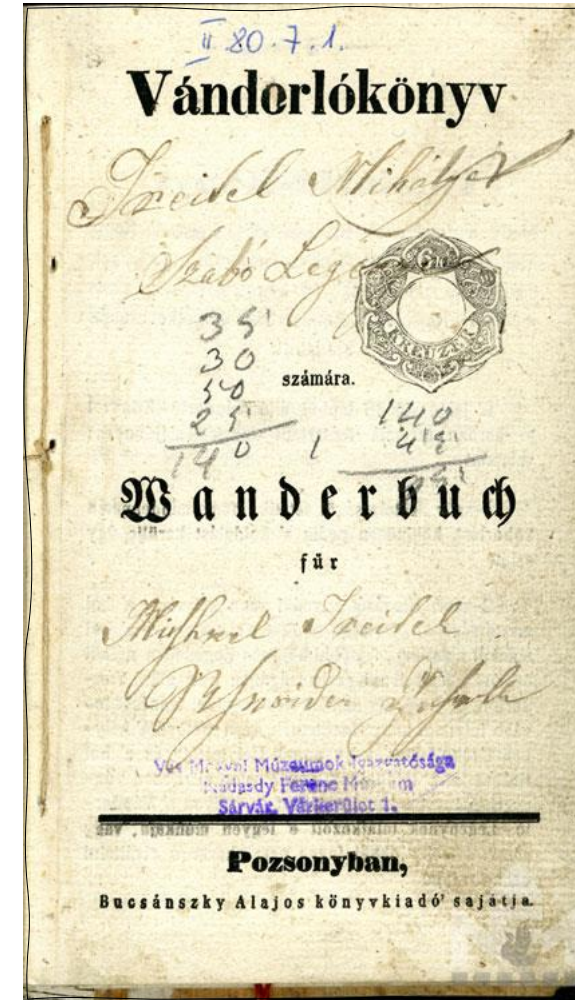 II 80.7.1.
Vándorlókönyv
Treitel Mihály
Szabó Legé
6 Kr.
KREUZER
35
30
50
25
140
számára.
1
140
45
95
Wanderbuch
für
Michael Treitel
Schneider Geselle
Vas Megyei Múzeumok Igazgatósága
Nádasdy Ferenc Múzeum
Sárvár, Várkerület 1.
Pozsonyban,
Bucsánszky Alajos könyvkiadó' sajátja.